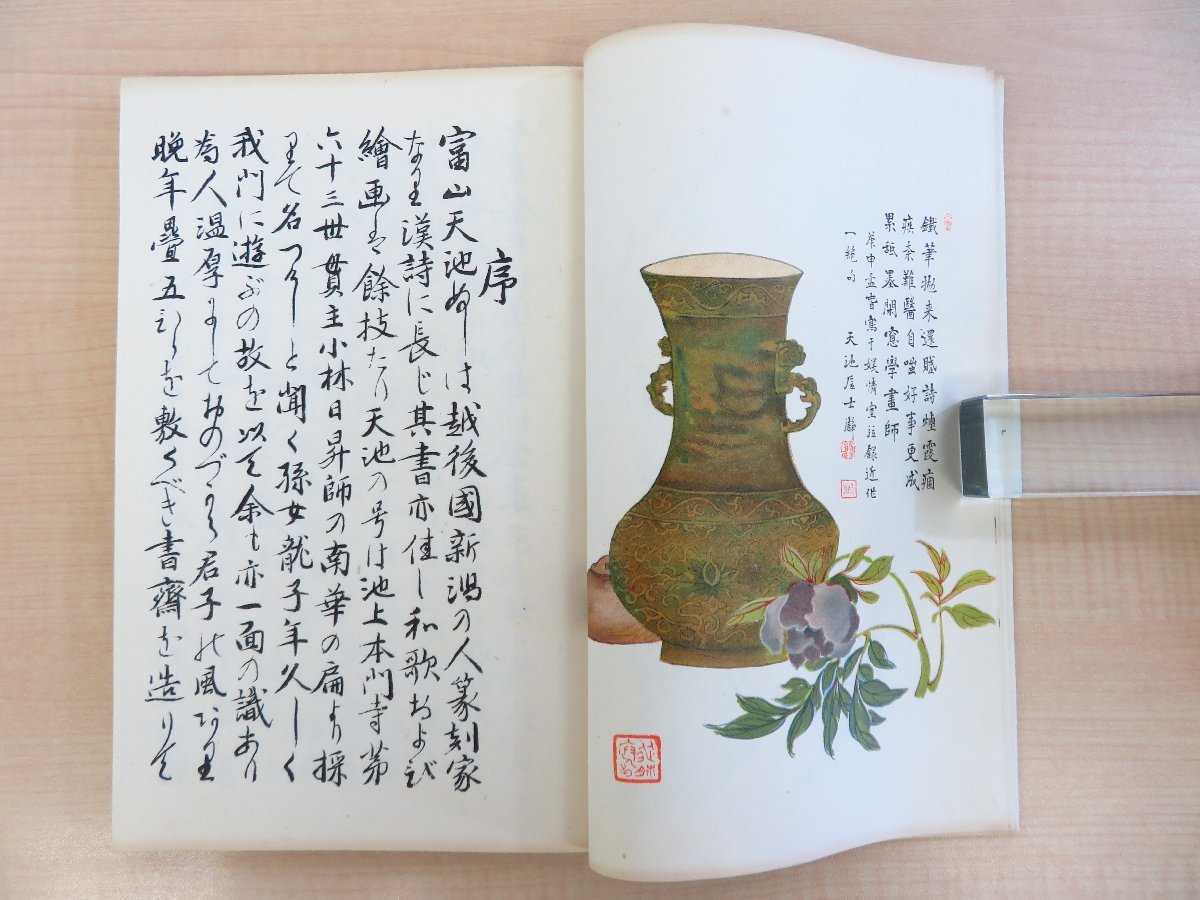 鐵筆抛来還賦詩煙霞痼
疾奈難醫自嗤好事更成
累舐墨閑窓學畫師
庚申孟 寫于娯情堂 録近作
一絶句　天池居士
序
富山天池ぬしは越後國新潟の人篆刻家
なり又漢詩に長じ其書亦佳し和歌および
繪画も餘技たり天池の号は池上本門寺第
六十三世貫主小林日昇師の南華の扁より採
りて名つけしと聞く孫女龍子年久しく
我門に遊ぶの故を以て余も亦一面の識あり
為人温厚にしておのづから君子の風あり又
晩年疊五ひらを敷くべき書齋を造りて